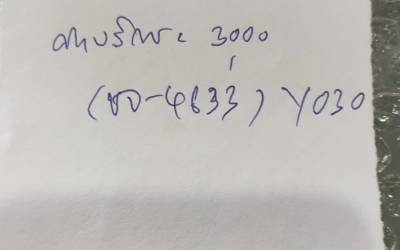 ค่าบริการ 3000
(ชว-4633) Y030